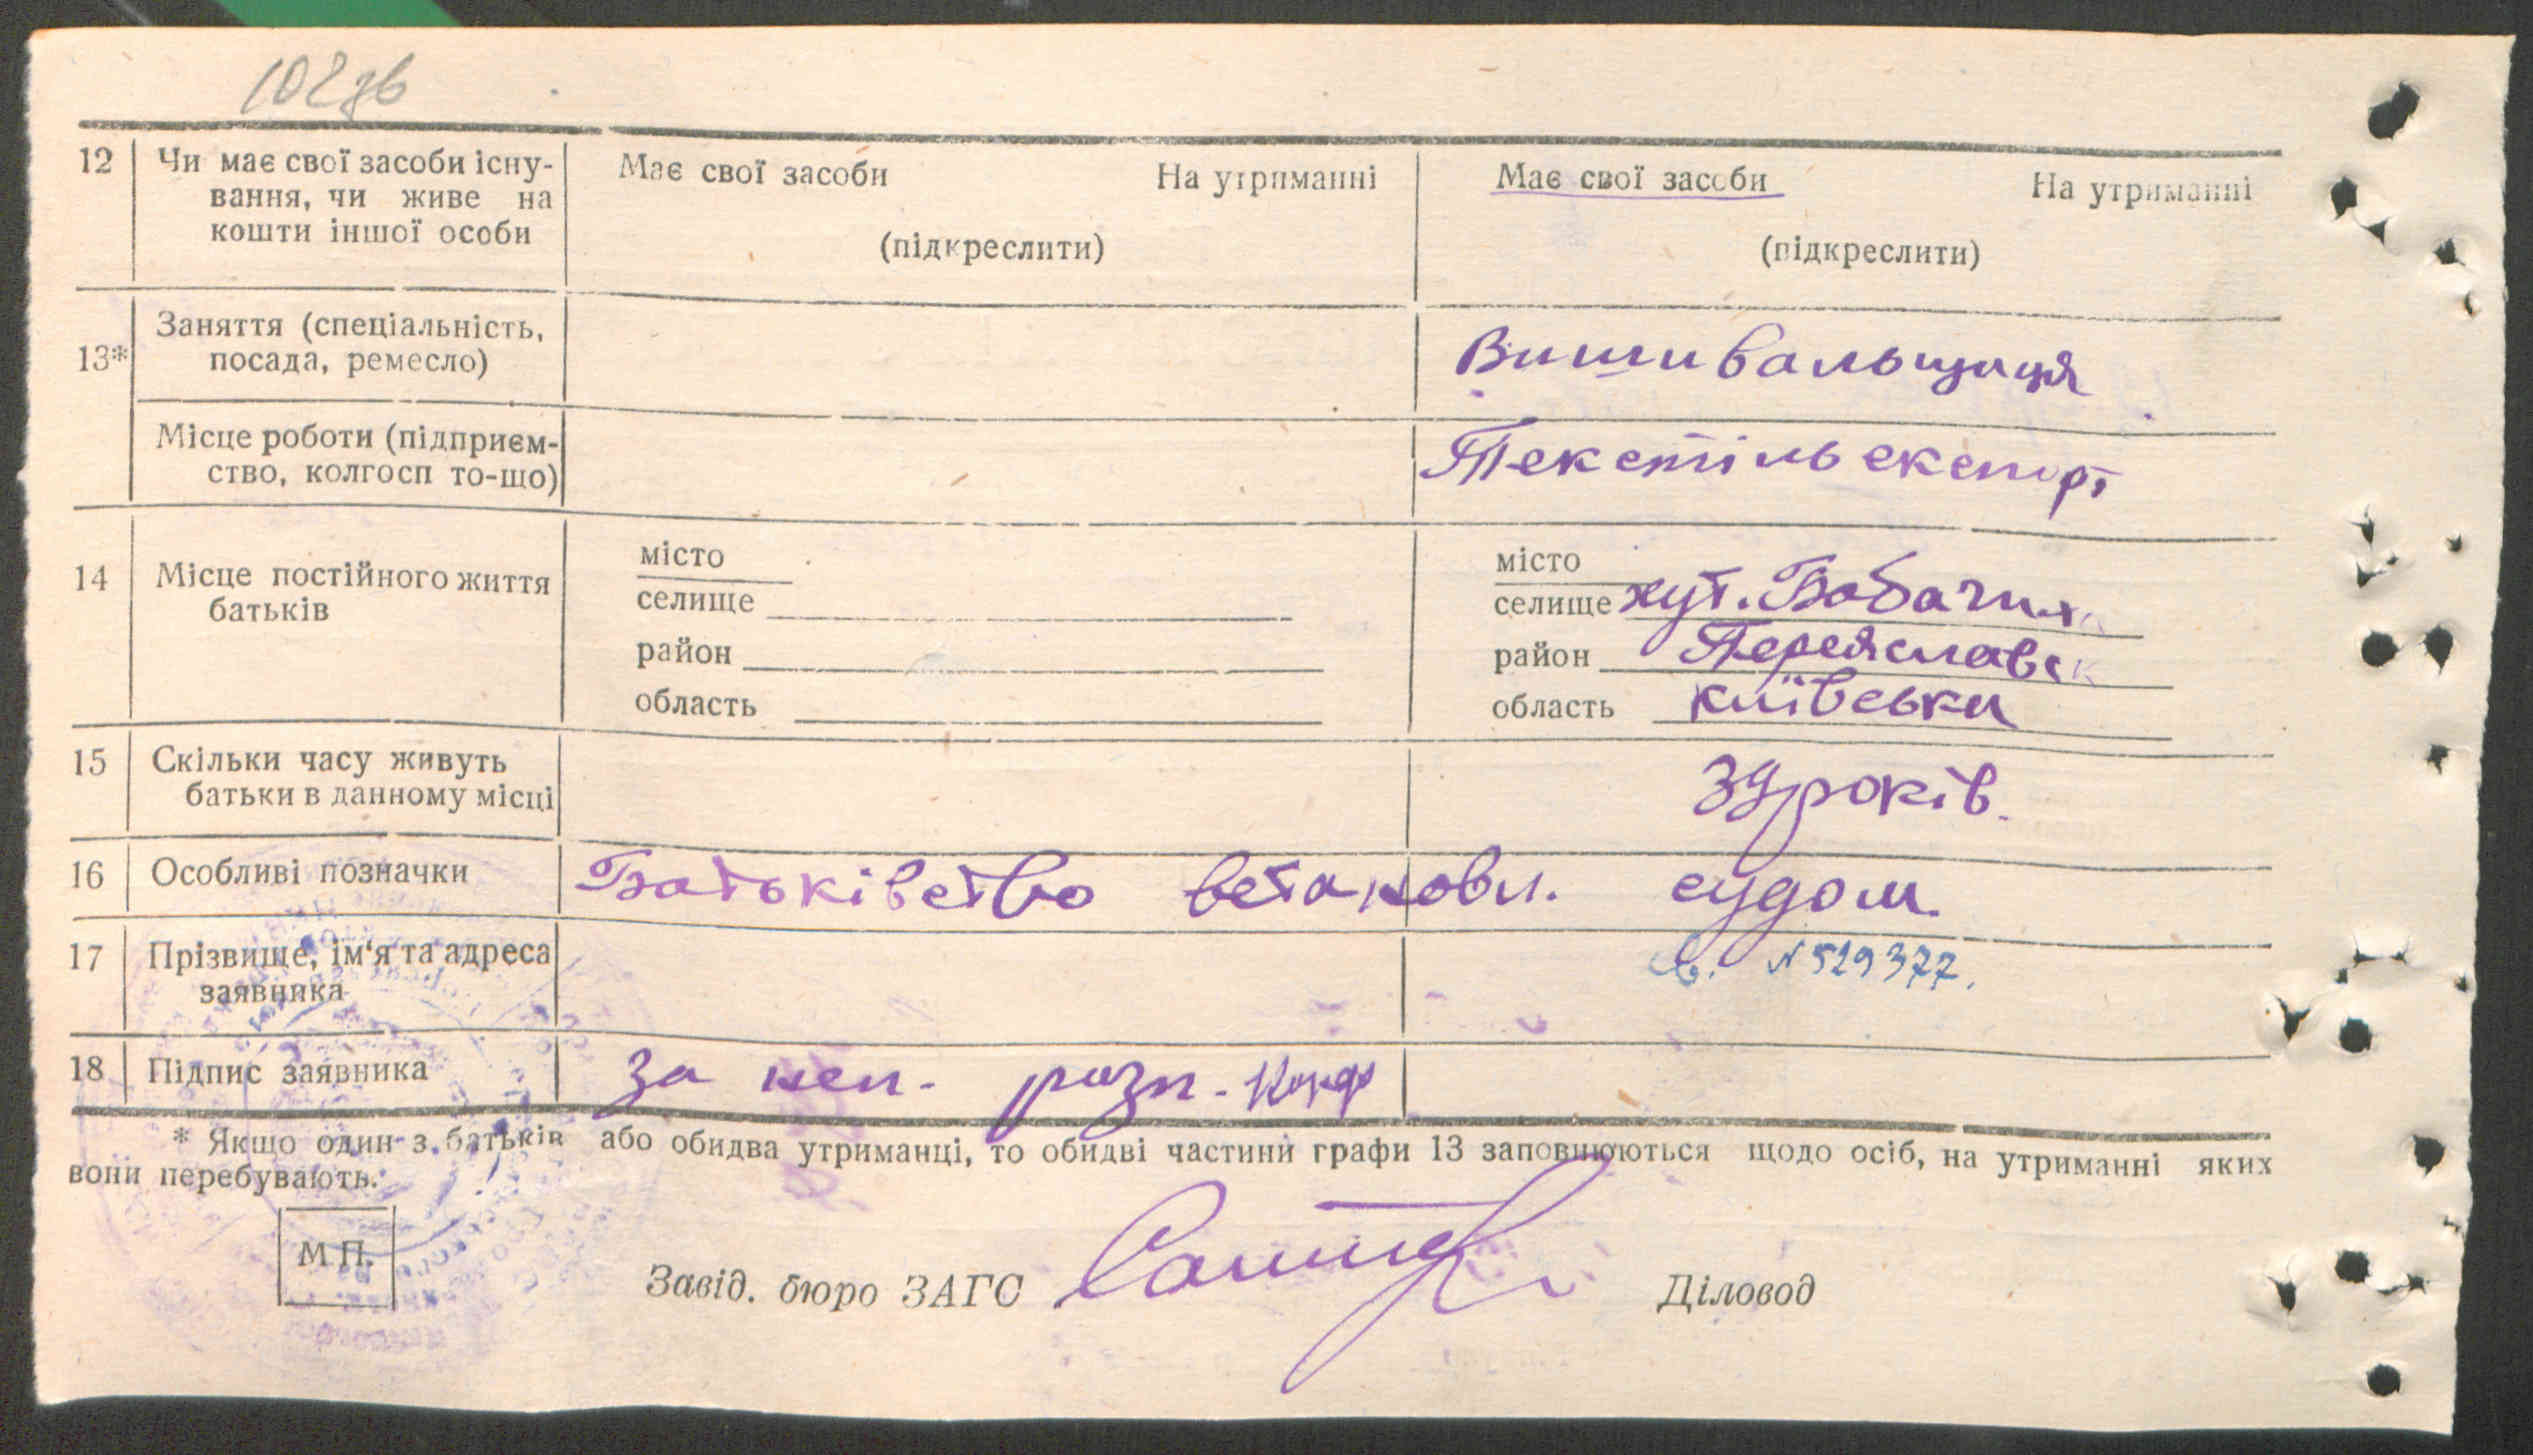 102зв
12 Чи має свої засоби існу- Має свої засоби На утриманні Має свої засоби На утриманні
вання, чи живе на
кошти іншої особи (підкреслити) (підкреслити)
Заняття (спеціальність, Вишивальщиця
13* посада, ремесло)
Місце роботи (підприєм- Текстільекспорт
ство, колгосп то-що)
місто місто
14 Місце постійного життя селище селище хут.
батьків
район район Переяславськ
область область Київська
15 Скільки часу живуть 39 років.
батьки в данному місці
16 Особливі позначки Батьківство встановл. судом.
17 Прізвище, ім'я та адреса № 529377.
заявника
18 Підпис заявника за неп. розп.
* Якщо один з батьків або обидва утриманці, то обидві частини графи 13 заповнюються щодо осіб, на утриманні яких
вони перебувають.
М.П.
Завід. бюро ЗАГС Діловод